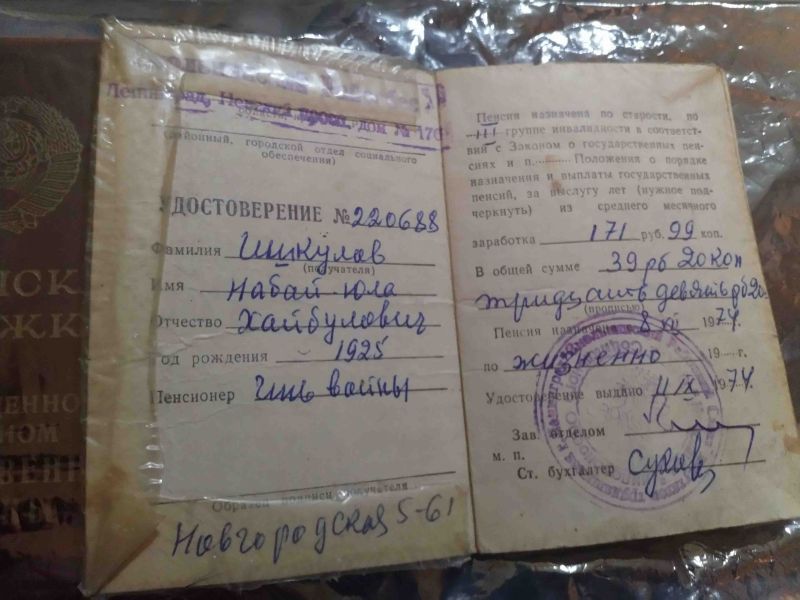 Ленинград, Невский просп. дом № 176
(районный, городской отдел социального
обеспечения)
УДОСТОВЕРЕНИЕ №220688
Фамилия Ишкулов
(получателя)
Имя Набайюла
Отчество Хайбулович
Год рождения 1925
Пенсионер Инв войны
Образец подписи получателя
Новгородская 5-61
Пенсия назначена по старости, по
III группе инвалидности в соответст-
вии с Законом о государственных пен-
сиях и п. Положения о порядке
назначения и выплаты государственных
пенсий, за выслугу лет (нужное под-
черкнуть) из среднего месячного
заработка 171 руб. 99 коп.
В общей сумме 39 рб 20 коп
тридцать девять рб 20
(прописью)
Пенсия назначена с 8 1974
по жизненно 19 г.
Удостоверение выдано 11 IX 1974
Зав. отделом
м. п.
Ст. бухгалтер Сухов